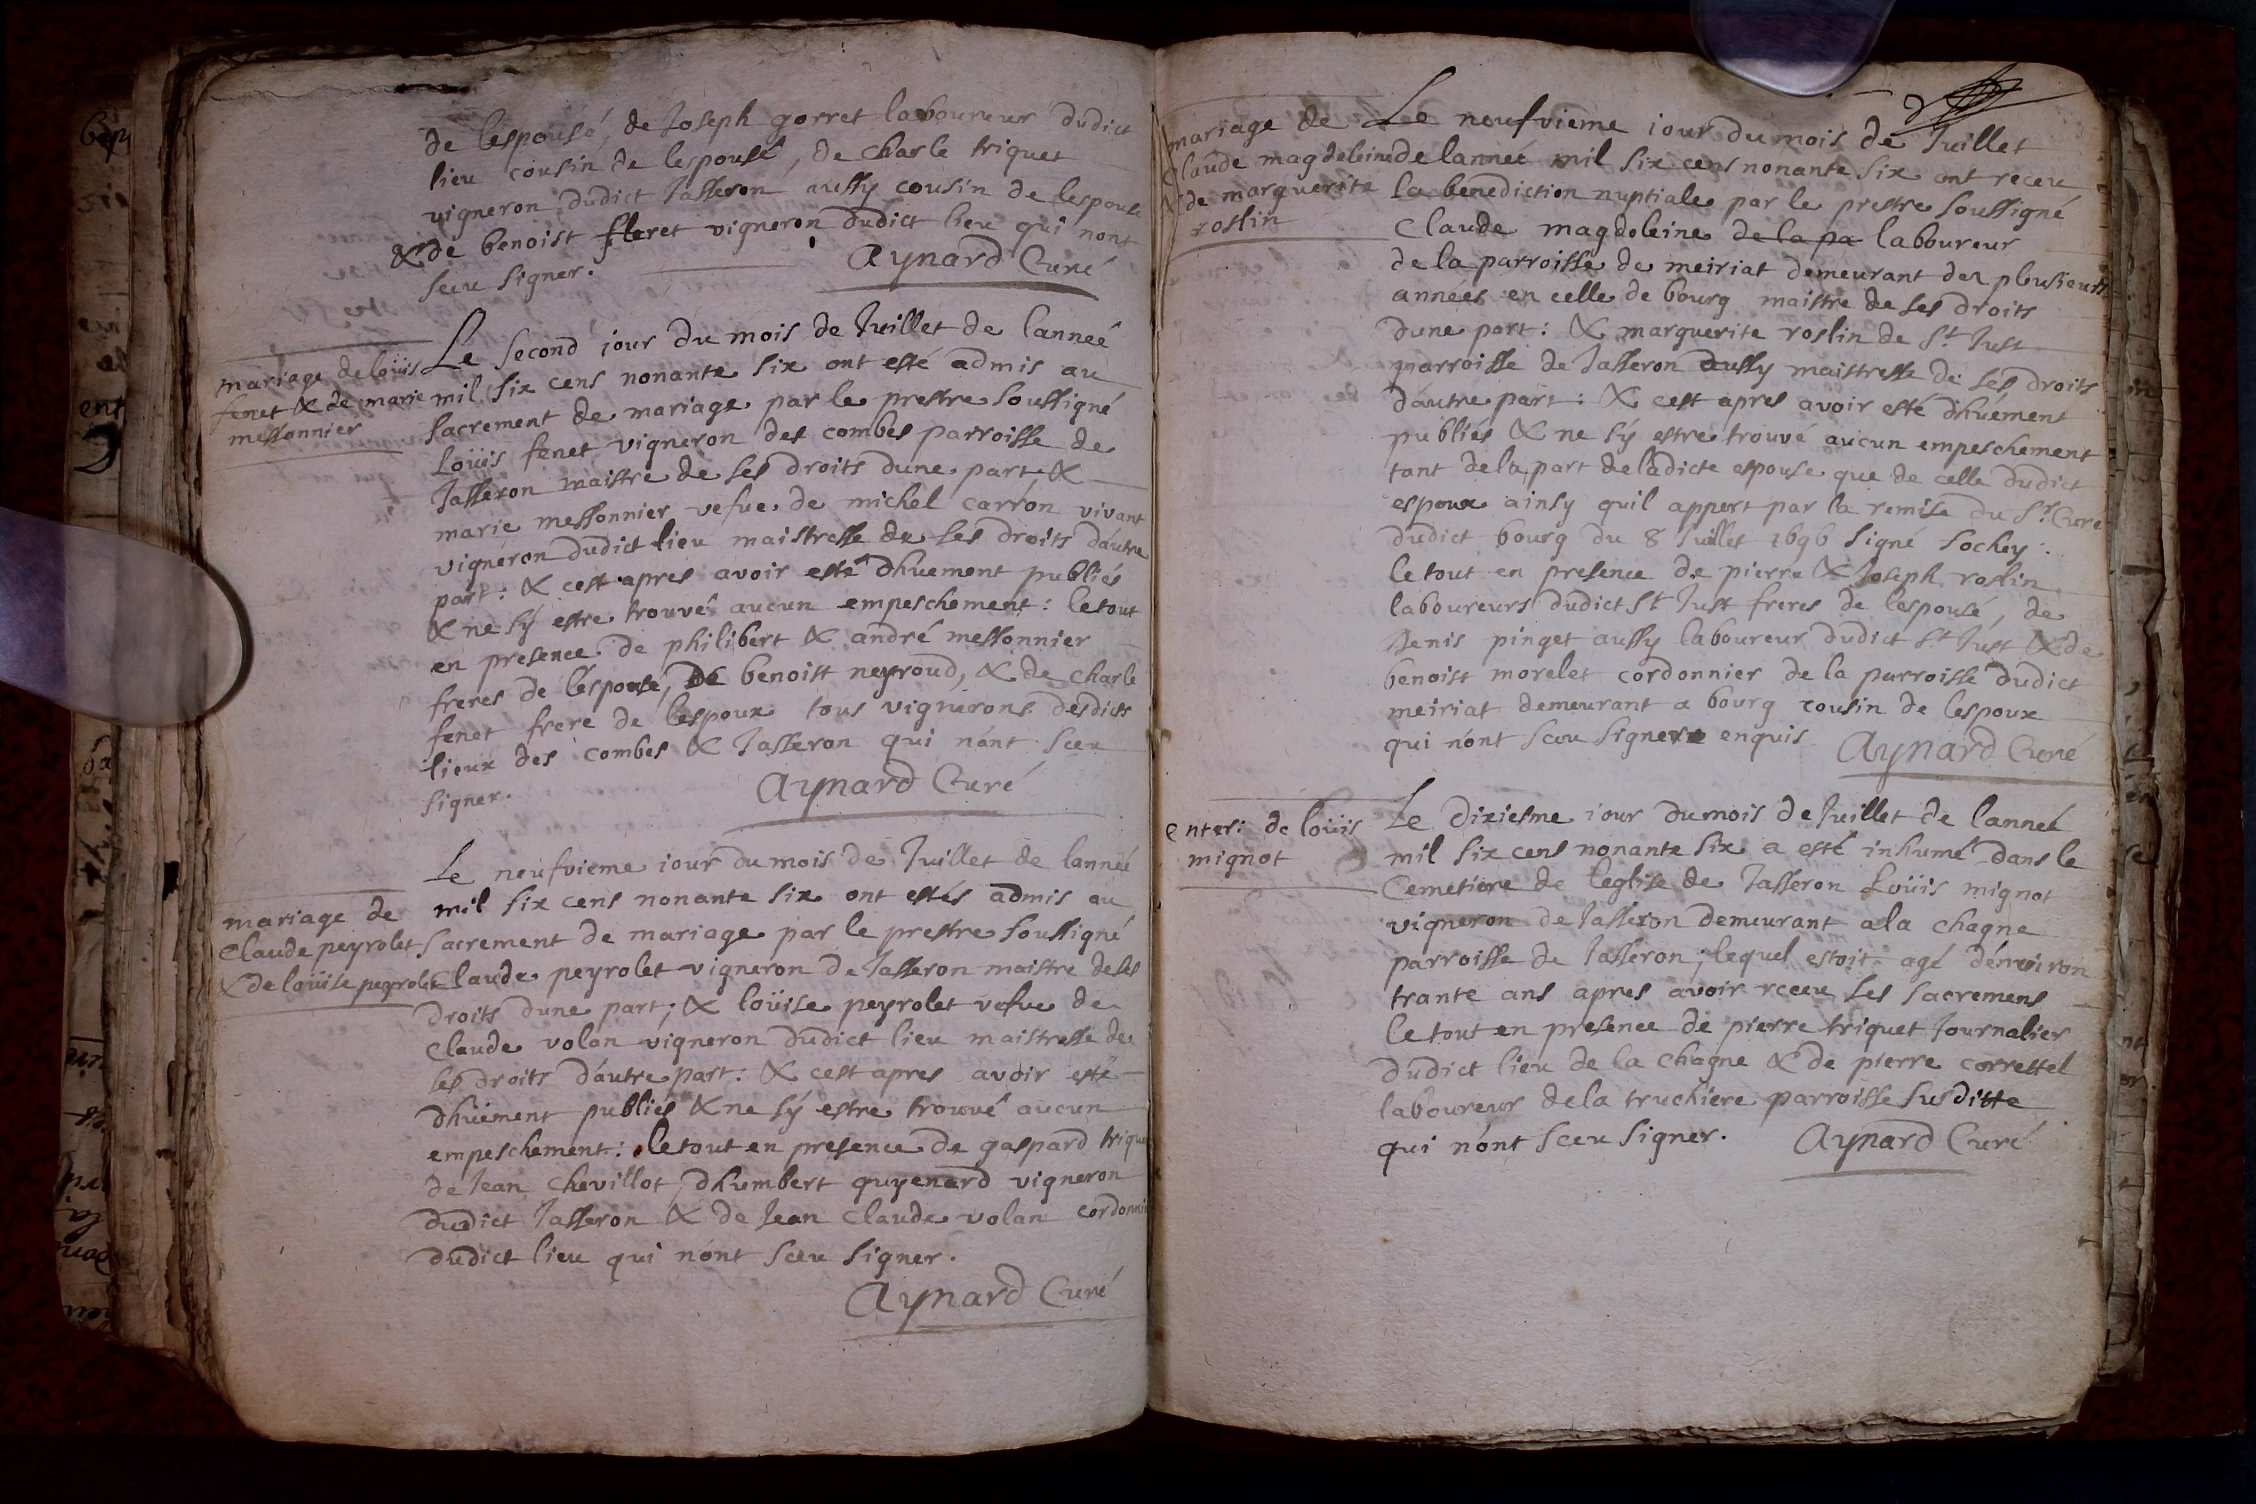 de lespousé, de Joseph gorret laboureur dudict
lieu cousin de lespousé, de charle triquet
vigneron dudict Jasseron aussy cousin de lespouse
& de benoist fleret vigneron dudict lieu qui nont
sceu signer.
Aynard Curé
mariage de loüis
fenet & de marie
messonnier
Le second iour du mois de Juillet de lanneé
mil six cens nonante six ont esté admis au
sacrement de mariage par le prestre soussigné
Loüis fenet vigneron des combes parroisse de
Jasseron maistre de ses droits dune part &
marie messonnier vefue de michel carron vivant
vigneron dudict lieu maistresse de ses droits dautre
part: & cest apres avoir esté dhuement publiés
& ne sÿ estre trouvé aucun empeschement: le tout
en presence de philibert & andré messonnier
freres de lespousé, de benoist neyroud, & de charle
fenet frere de lespoux tous vignerons desdicts
lieux des combes & Jasseron qui nónt sceu
signer.
Aynard Curé
mariage de
Claude peyrolet
& de loüise peyrolet
Le neufvieme iour du mois de Juillet de lanneé
mil six cens nonante six ont estés admis au
sacrement de mariage par le prestre soussigné
Claude peyrolet vigneron de Jasseron maistre de ses
droits dune part; & loüise peyrolet vefue de
Claude volan vigneron dudict lieu maistresse de
ses droits dáutre part: & cest apres avoir esté
dhüement publiés & ne sÿ estre trouvé aucun
empeschement: le tout en presence de gaspard trique
de Jean chevillot, dhumbert guyenard vigneron
dudict Jasseron & de Jean claude volan cordonni
dudict lieu qui nónt sceu signer.
Aynard Curé
mariage de
Claude magdeleine
& de marguerite
roslin
Le neufvieme iour du mois de Juillet
de lanneé mil six cens nonante six ont receu
la benediction nuptiale par le prestre soussigné
Claude magdeleine de la pa laboureur
de la parroisse de meiriat demeurant des plusieurs
années en celle de bourg maistre de ses droits
dune part: & marguerite roslin de St Just
parroisse de Jasseron aussy maistresse de ses droits
dáutre part: & cest apres avoir esté dhuement
publiés & ne sÿ estre trouvé aucun empeschement
tant de la part de ladicte espouse que de celle dudict
espoux ainsy quil appert par la remise du Sr Curé
dudict bourg du 8 Juillet 1696 signé sochey.
le tout en presence de pierre & Joseph roslin
laboureurs dudict St Just freres de lespousé, de
denis pinget aussy laboureur dudict St Just & de
benoist morelet cordonnier de la parroisse dudict
meiriat demeurant a bourg cousin de lespoux
qui nónt sceu signer enquis
Aynard Curé
enter: de loüis
mignot
Le dixiesme iour du mois de Juillet de lanneé
mil six cens nonante six a esté inhumé dans le
Cemetiere de leglise de Jasseron Loüis mignot
vigneron de Jasseron demeurant a la chagne
parroisse de Jasseron; lequel estoit agé dénviron
trante ans apres avoir receu ses sacremens
le tout en presence de pierre triquet Journalier
dudict lieu de la chagne & de pierre correttel
laboureur de la truchiere parroisse susditte
qui nónt sceu signer.
Aynard Curé